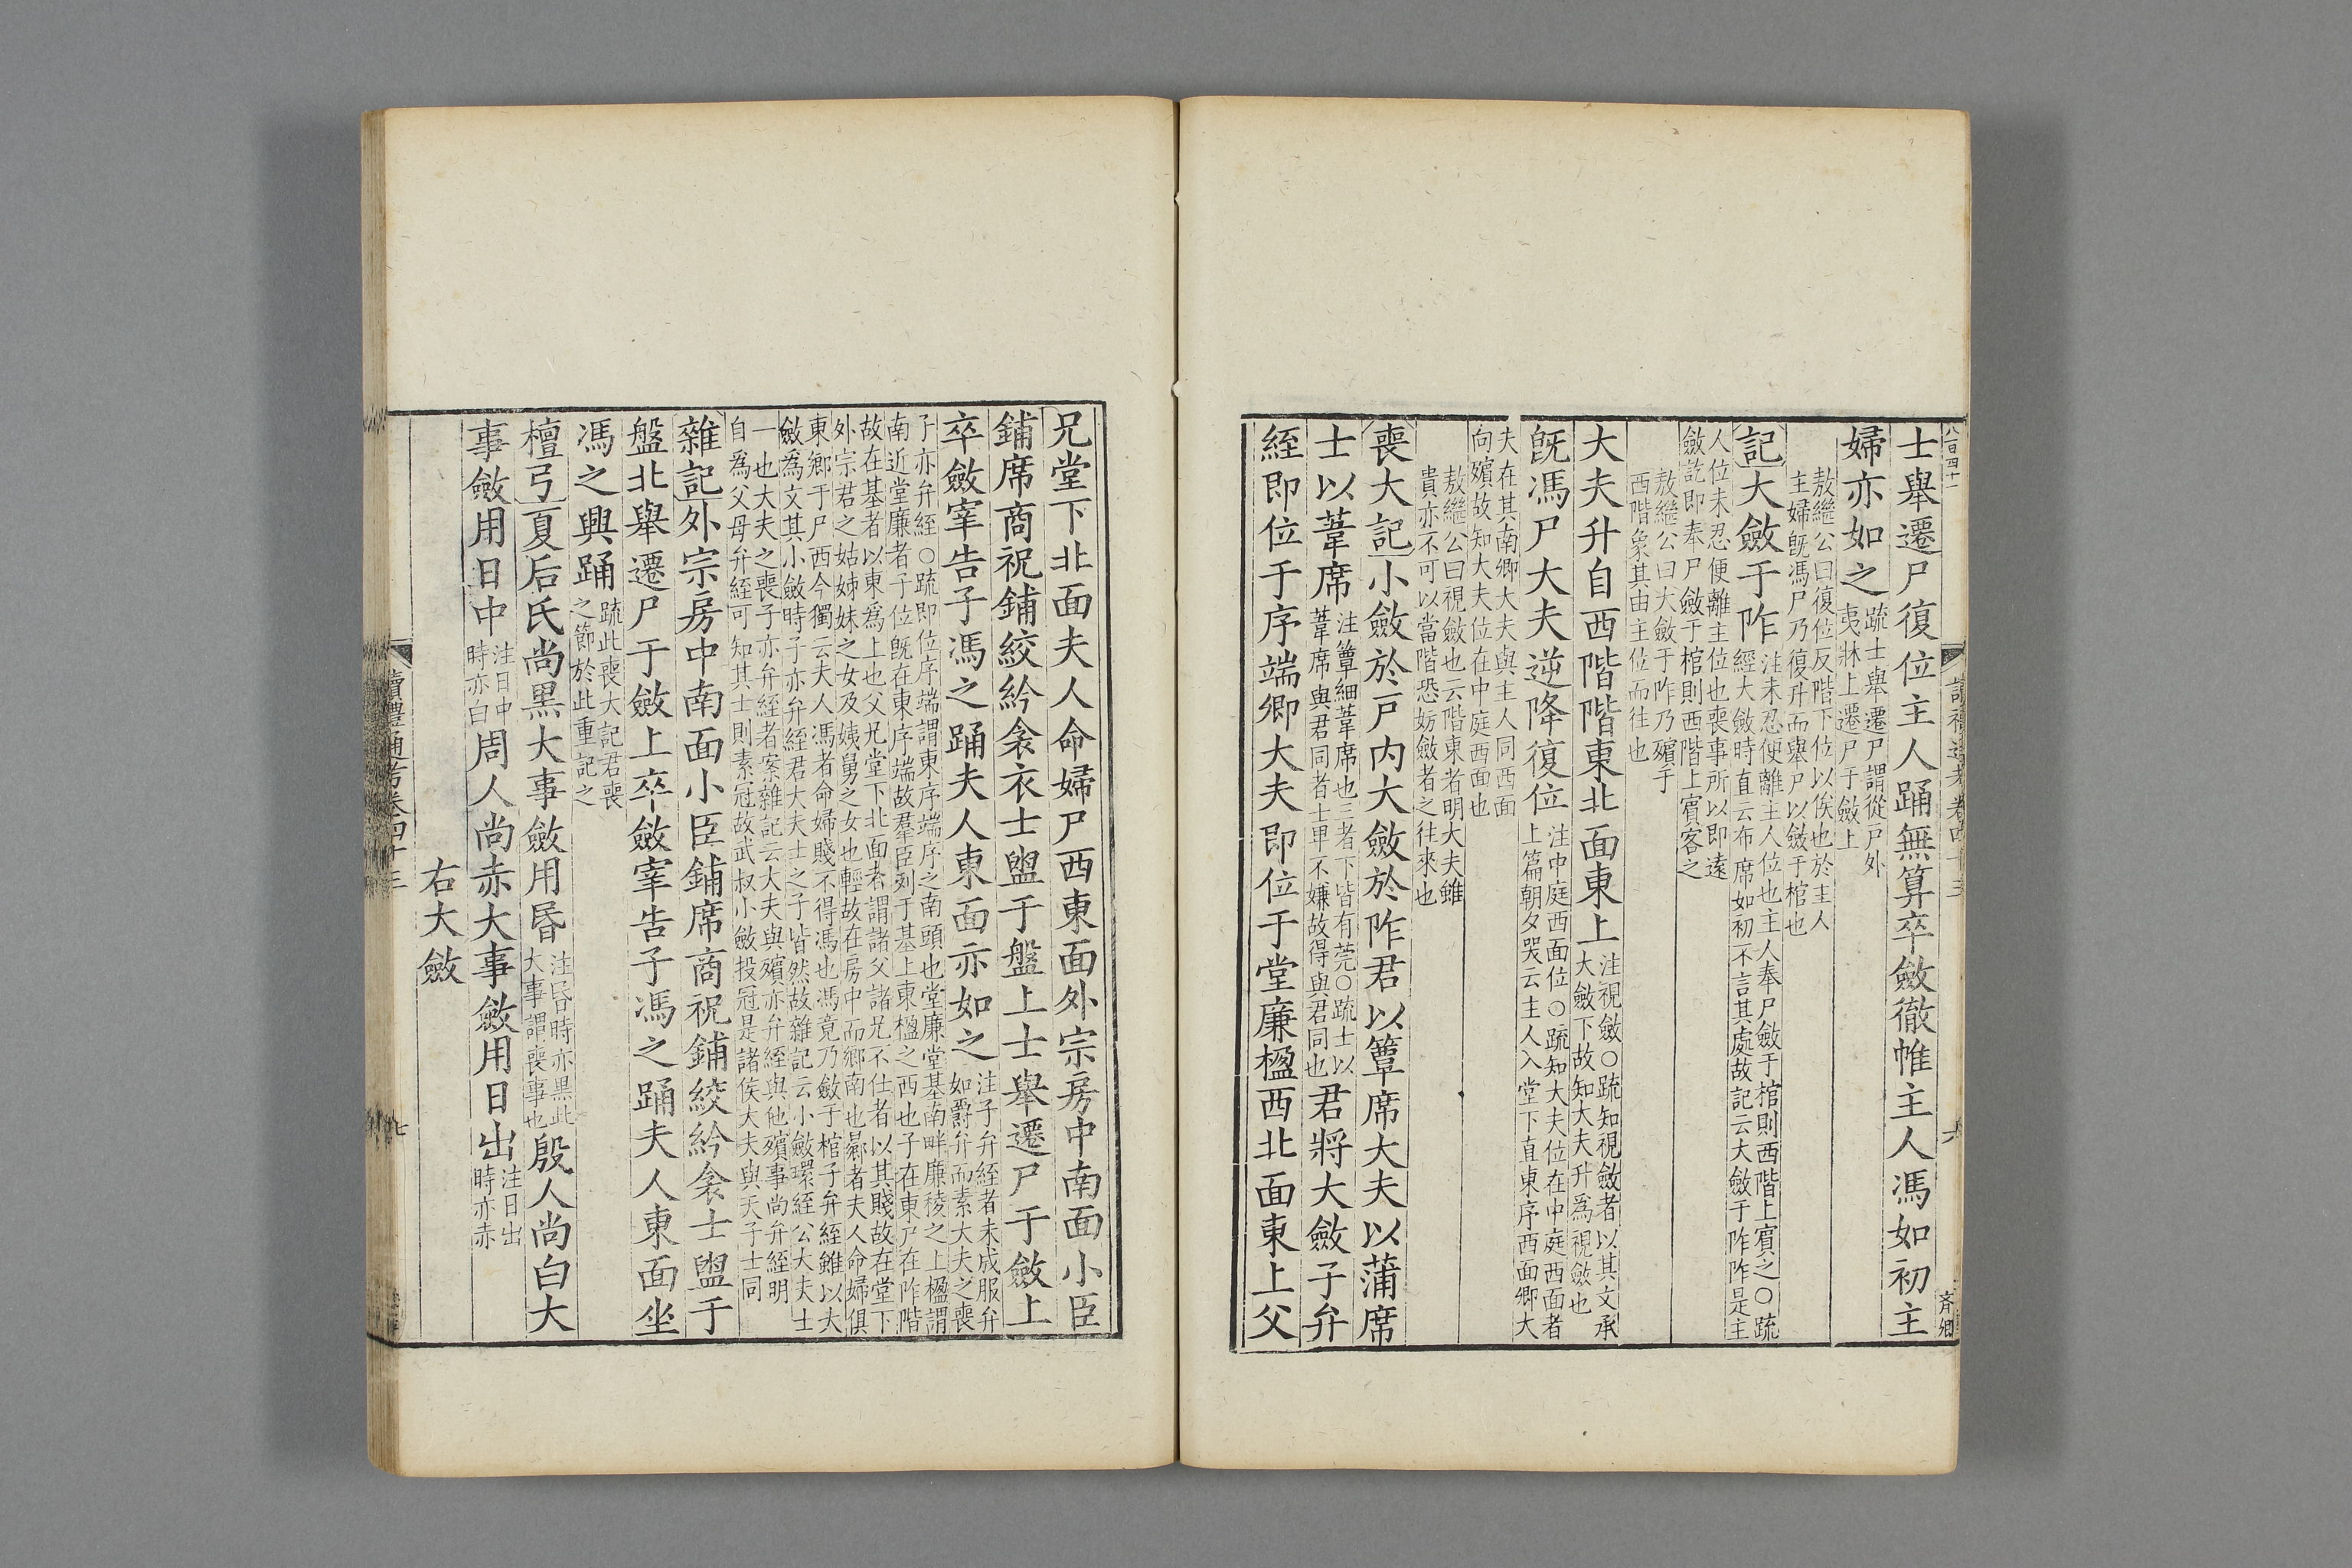 八百四十一
讀禮通考卷四十三
六
齊卿
士舉遷尸復位主人踊無算卒斂徹帷主人馮如初主
婦亦如之
疏士舉遷尸謂從戸外
夷牀上遷尸于斂上
敖繼公曰復位反階下位以俟也於主人
主婦旣馮尸乃復升而舉尸以斂于棺也
記大斂于阼
注未忍便離主人位也主人奉尸斂于棺則西階上賓之○疏
經大斂時直云布席如初不言其處故記云大斂于阼阼是主
人位未忍便離主位也喪事所以即遠
斂訖即奉尸斂于棺則西階上賓客之
敖繼公曰大斂于阼乃殯于
西階象其由主位而往也
大夫升自西階階東北面東上
注視斂○疏知視斂者以其文承
大斂下故知大夫升爲視斂也
旣馮尸大夫逆降復位
注中庭西面位○疏知大夫位在中庭西面者
上篇朝夕哭云主人入堂下直東序西面卿大
夫在其南卿大夫與主人同西面
向殯故知大夫位在中庭西面也
敖繼公曰視斂也云階東者明大夫雖
貴亦不可以當階恐妨斂者之往來也
喪大記小斂於戸内大斂於阼君以簟席大夫以蒲席
士以葦席
注簟細葦席也三者下皆有莞○疏士以
葦席與君同者士卑不嫌故得與君同也
君將大斂子弁
絰即位于序端卿大夫即位于堂廉楹西北面東上父
兄堂下北面夫人命婦尸西東面外宗房中南面小臣
鋪席商祝鋪絞紟衾衣士盥于盤上士舉遷尸于斂上
卒斂宰告子馮之踊夫人東面亦如之
注子弁絰者未成服弁
如爵弁而素大夫之喪
子亦弁絰○疏即位序端謂東序端序之南頭也堂廉堂基南畔廉稜之上楹謂
南近堂廉者子位旣在東序端故羣臣列于基上東楹之西也子在東尸在阼階
故在基者以東爲上也父兄堂下北面者謂諸父諸兄不仕者以其賤故在堂下
外宗君之姑姊妹之女及姨舅之女也輕故在房中而鄉南也曏者夫人命婦俱
東鄉于尸西今獨云夫人馮者命婦賤不得馮也馮竟乃斂于棺子弁絰雖以大
斂爲文其小斂時子亦弁絰君大夫士之子皆然故雜記云小斂環絰公大夫士
一也大夫之喪子亦弁絰者案雜記云大夫與殯亦弁絰與他殯事尚弁絰明
自爲父母弁絰可知其士則素冠故武叔小斂投冠是諸侯大夫與天子士同
雜記外宗房中南面小臣鋪席商祝鋪絞紟衾士盥于
盤北舉遷尸于斂上卒斂宰告子馮之踊夫人東面坐
馮之興踊
疏此喪大記君喪
之節於此重記之
檀弓夏后氏尚黑大事斂用昬
注昬時亦黑此
大事謂喪事也
殷人尚白大
事斂用日中
注日中
時亦白
周人尚赤大事斂用日出
注日出
時亦赤
右大斂
讀禮通考卷四十三
七